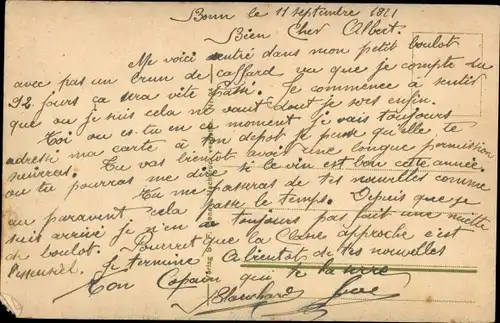 Bonn le 11 septembre 1921
Bien Cher Albert.
Me voici rentré dans mon petit boulot
avec pas un brun de caffard vu que je compte la
92 jours ça sera vite passé. Je commence à sentir
que ou je suis cela ne vaut d'où je sors enfin.
Toi ou es-tu en ce moment je vais toujours
adressé ma carte à ton depot je pense qu'elle te
suivras. Tu vas bientot avoir une longue permission
ou tu pourras me dire si le vin est bon cette année.
Tu me passeras de tes nouvelles comme
au paravent cela passe le temps. Depuis que je
suis arrivé je n'en toujours pas fait une
de boulot. Pourvu que la Classe approche c'est
l'essentiel. A bientot de tes nouvelles
Je termine
Ton Copain qui te la serre
Blanchard